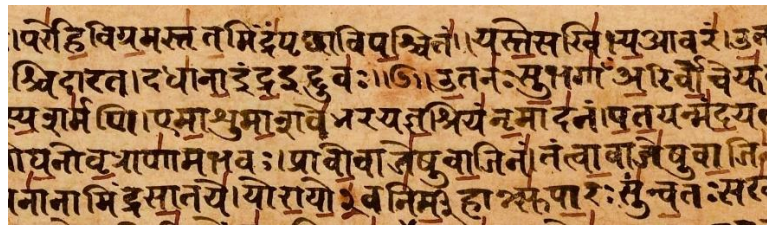 ।परेहि॒ विग्र॒मस्तृ॑त॒मिंद्रं॑ पृछा विप॒श्चितं॑॥ यस्ते॒ सखि॑भ्य॒ आ वरं॑। उ॒त
श्चिदारत। दधा॑ना॒ इंद्र॒ इद्दुवः॑॥७॥ उ॒त नः॑ सु॒भगाँ॑ अ॒रिर्वो॒चेयु॑
स्य॒ शर्म॑णि॥ एमा॒शुमा॒शवे॑ भर यज्ञ॒श्रियं॑ नृ॒माद॑नं। प॒त॒यन्मं॑द॒य
घ॒नो वृ॒त्राणा॑मभवः। प्रावो॒ वाजे॑षु वा॒जिनं॑॥ तं त्वा॒ वाजे॑षु वा॒जि
नानामिंद्र सा॒तये॑। यो रा॒यो॒३॒॑वनि॑र्म॒हान्त्सु॑पा॒रः सु॑न्व॒तः सखा